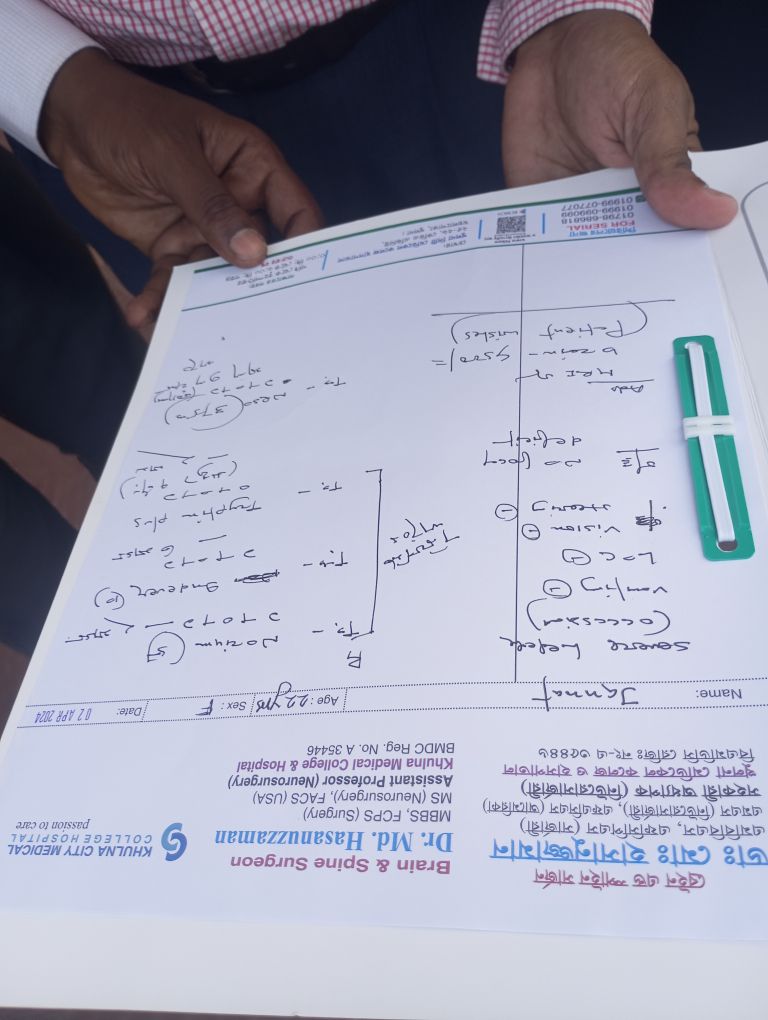 ব্রেইন এন্ড স্পাইন সার্জন
ডাঃ মোঃ হাসানুজ্জামান
এমবিবিএস, এফসিপিএস (সার্জারী)
এমএস (নিউরোসার্জারী), এফএসিএস (আমেরিকা)
সহকারী অধ্যাপক (নিউরোসার্জারী)
খুলনা মেডিকেল কলেজ ও হাসপাতাল
বিএমডিসি রেজিঃ নং-এ ৩৫৪৪৬
Brain & Spine Surgeon
Dr. Md. Hasanuzzaman
MBBS, FCPS (Surgery)
MS (Neurosurgery), FACS (USA)
Assistant Professor (Neurosurgery)
Khulna Medical College & Hospital
BMDC Reg. No. A 35446
KHULNA CITY MEDICAL
COLLEGE HOSPITAL
passion to care
Name: Jannat Age: 22 yrs Sex: F Date: 02 APR 2024
severe
(occassion)
vomiting (-)
LOC (-)
vision (-)
Hearing (-)
O/E No focal
deficit
Adv
MRI of
brain - 4500/=
(Patient wishes)
Rx
T. - Nozium (5)
১+০+১ — ২ মাস
T. - Indever (10)
১+০+১
— ৬ মাস
T. - Tryptin plus
০+০+১
— ২ মাস
T. -
(3750)
সিরিয়ালের জন্য
FOR SERIAL
01798-686818
01999-099099
01999-077077
চেম্বার:
খুলনা সিটি মেডিকেল কলেজ হাসপাতাল
২৫-২৬, কেডিএ এভিনিউ,
ময়লাপোতা, খুলনা।